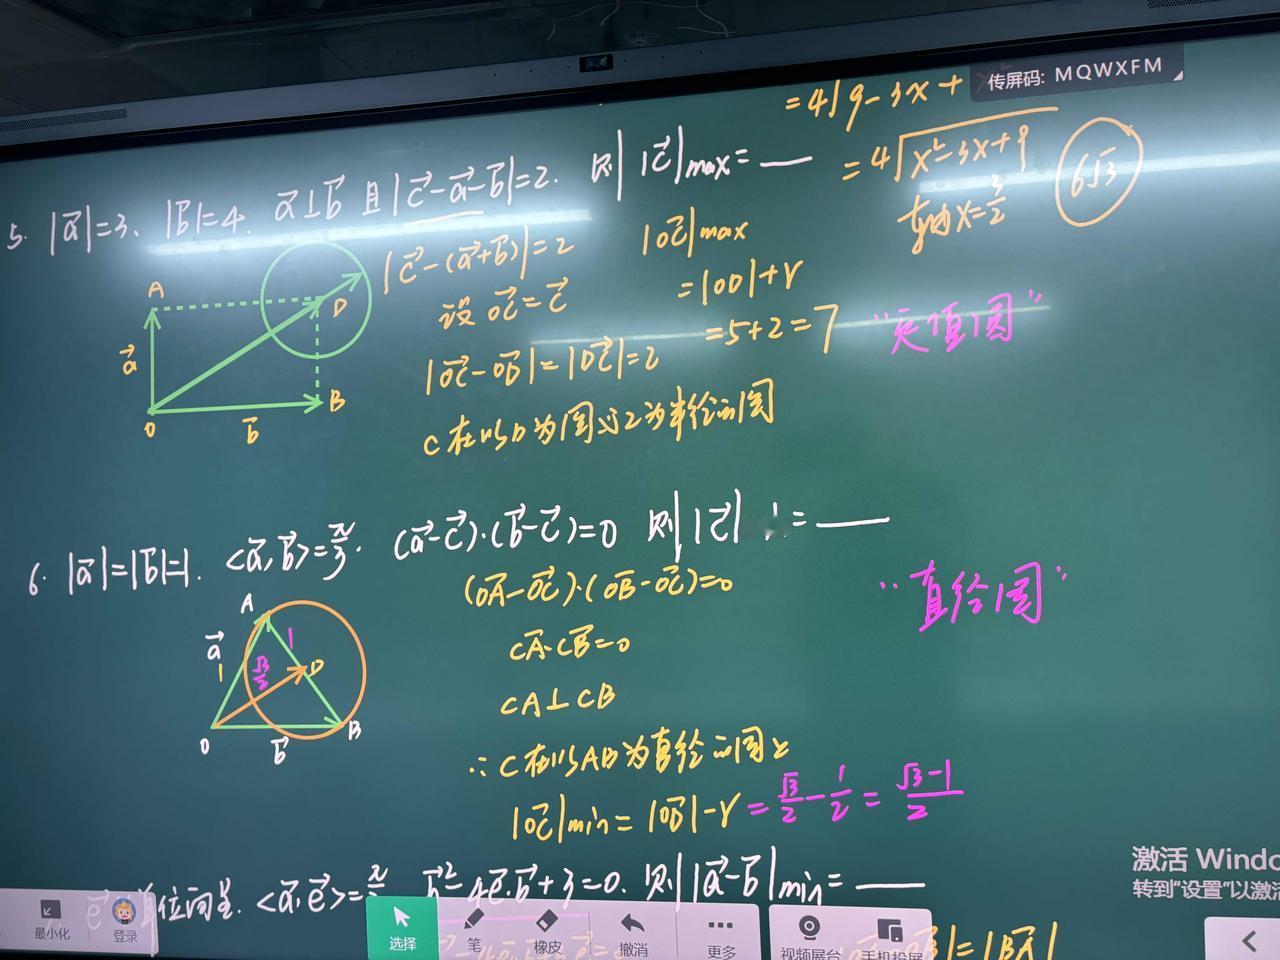 传屏码: MQWXFM
=4√9-3x+
=4√x²-3x+9
x=3/2
6√3
5. |a⃗|=3、|b⃗|=4. a⃗⊥b⃗ 且|c⃗-a⃗-b⃗|=2. 则|c⃗|max=___
|c⃗-(a⃗+b⃗)|=2
设 OC⃗=c⃗
|OC⃗-OD⃗|=|DC⃗|=2
C在以D为圆心2为半径的圆
|OC⃗|max
=|OD|+r
=5+2=7
"定值圆"
A
D
a⃗
O
b⃗
B
6. |a⃗|=|b⃗|=1. <a⃗,b⃗>=π/3. (a⃗-c⃗)·(b⃗-c⃗)=0 则|c⃗| =___
(OA⃗-OC⃗)·(OB⃗-OC⃗)=0
CA⃗·CB⃗=0
CA⊥CB
∴C在以AB为直径的圆上
|OC⃗|min=|OD⃗|-r=√3/2-1/2=(√3-1)/2
"直径圆"
A
a⃗
1
1
√3/2
D
O
b⃗
B
e⃗ 单位向量. <a⃗,e⃗>=π b⃗²-4e⃗·b⃗+3=0. 则|a⃗-b⃗|min=___
|=|BA⃗|
激活 Windo
转到"设置"以激活
最小化
登录
选择
笔
橡皮
撤消
更多
视频展台
手机投屏